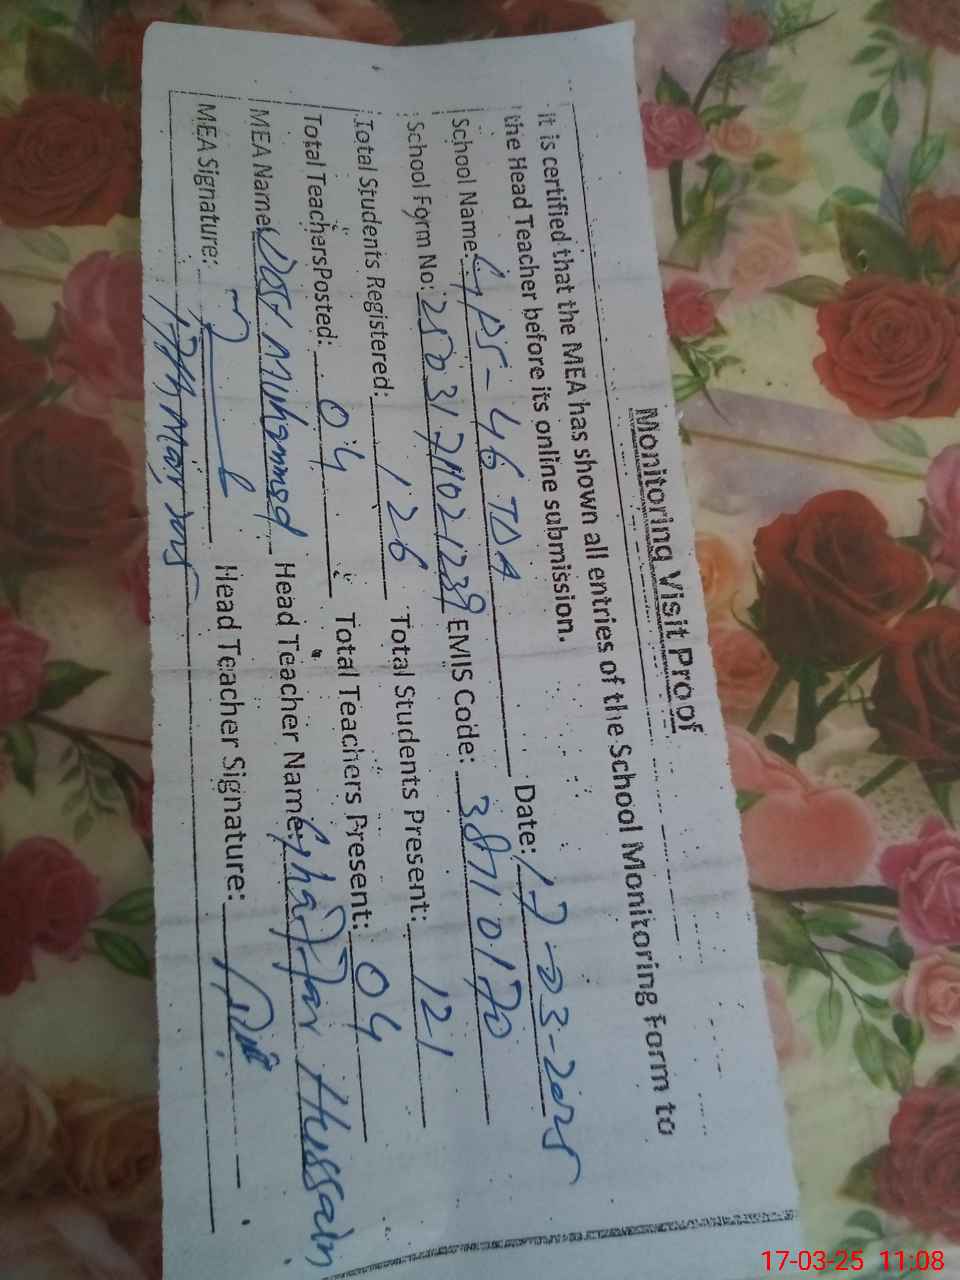 Monitoring Visit Proof
It is certified that the MEA has shown all entries of the School Monitoring Form to
the Head Teacher before its online submission.
School Name: GPS-46 TDA Date: 17-03-2025
School Form No: EMIS Code: 38710170
Total Students Registered: 126 Total Students Present: 121
Total Teachers Posted: 04 Total Teachers Present: 04
MEA Name: Dost Muhammad Head Teacher Name: Ghaffar Hussain
MEA Signature: Head Teacher Signature:
17-03-25 11:08